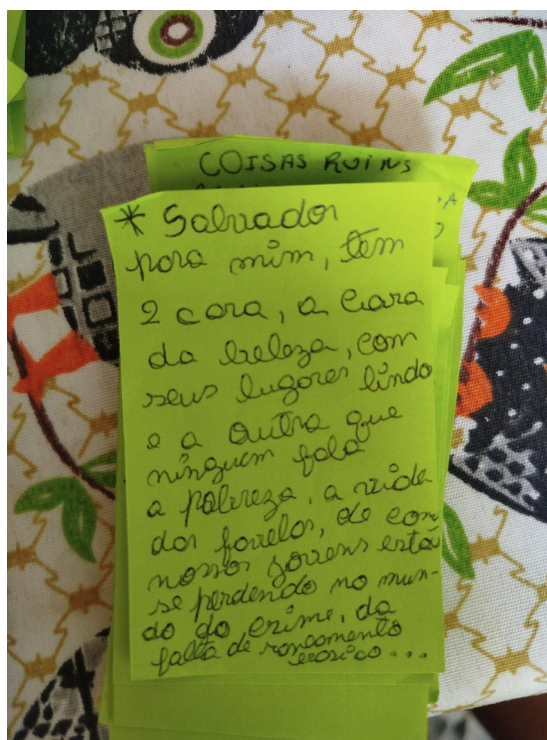 COISAS RUINS
* Salvador
para mim, tem
2 cara, a cara
da beleza, com
seus lugares lindo
e a outra que
ninguem fala
a pobreza, a vida
das favelas, de com
nossos jovens estão
se perdendo no mun-
do do crime, da
falta de